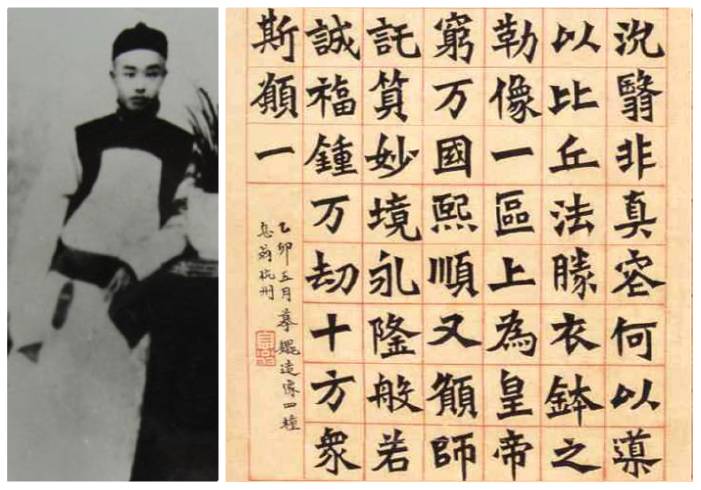 沉翳非真容何以導
以比丘法勝衣鉢之
勒像一區上為皇帝
窮万國熙順又願師
託質妙境永隆般若
誠福鍾万劫十方衆
斯願一
乙卯五月摹魏造像四種
息翁杭州